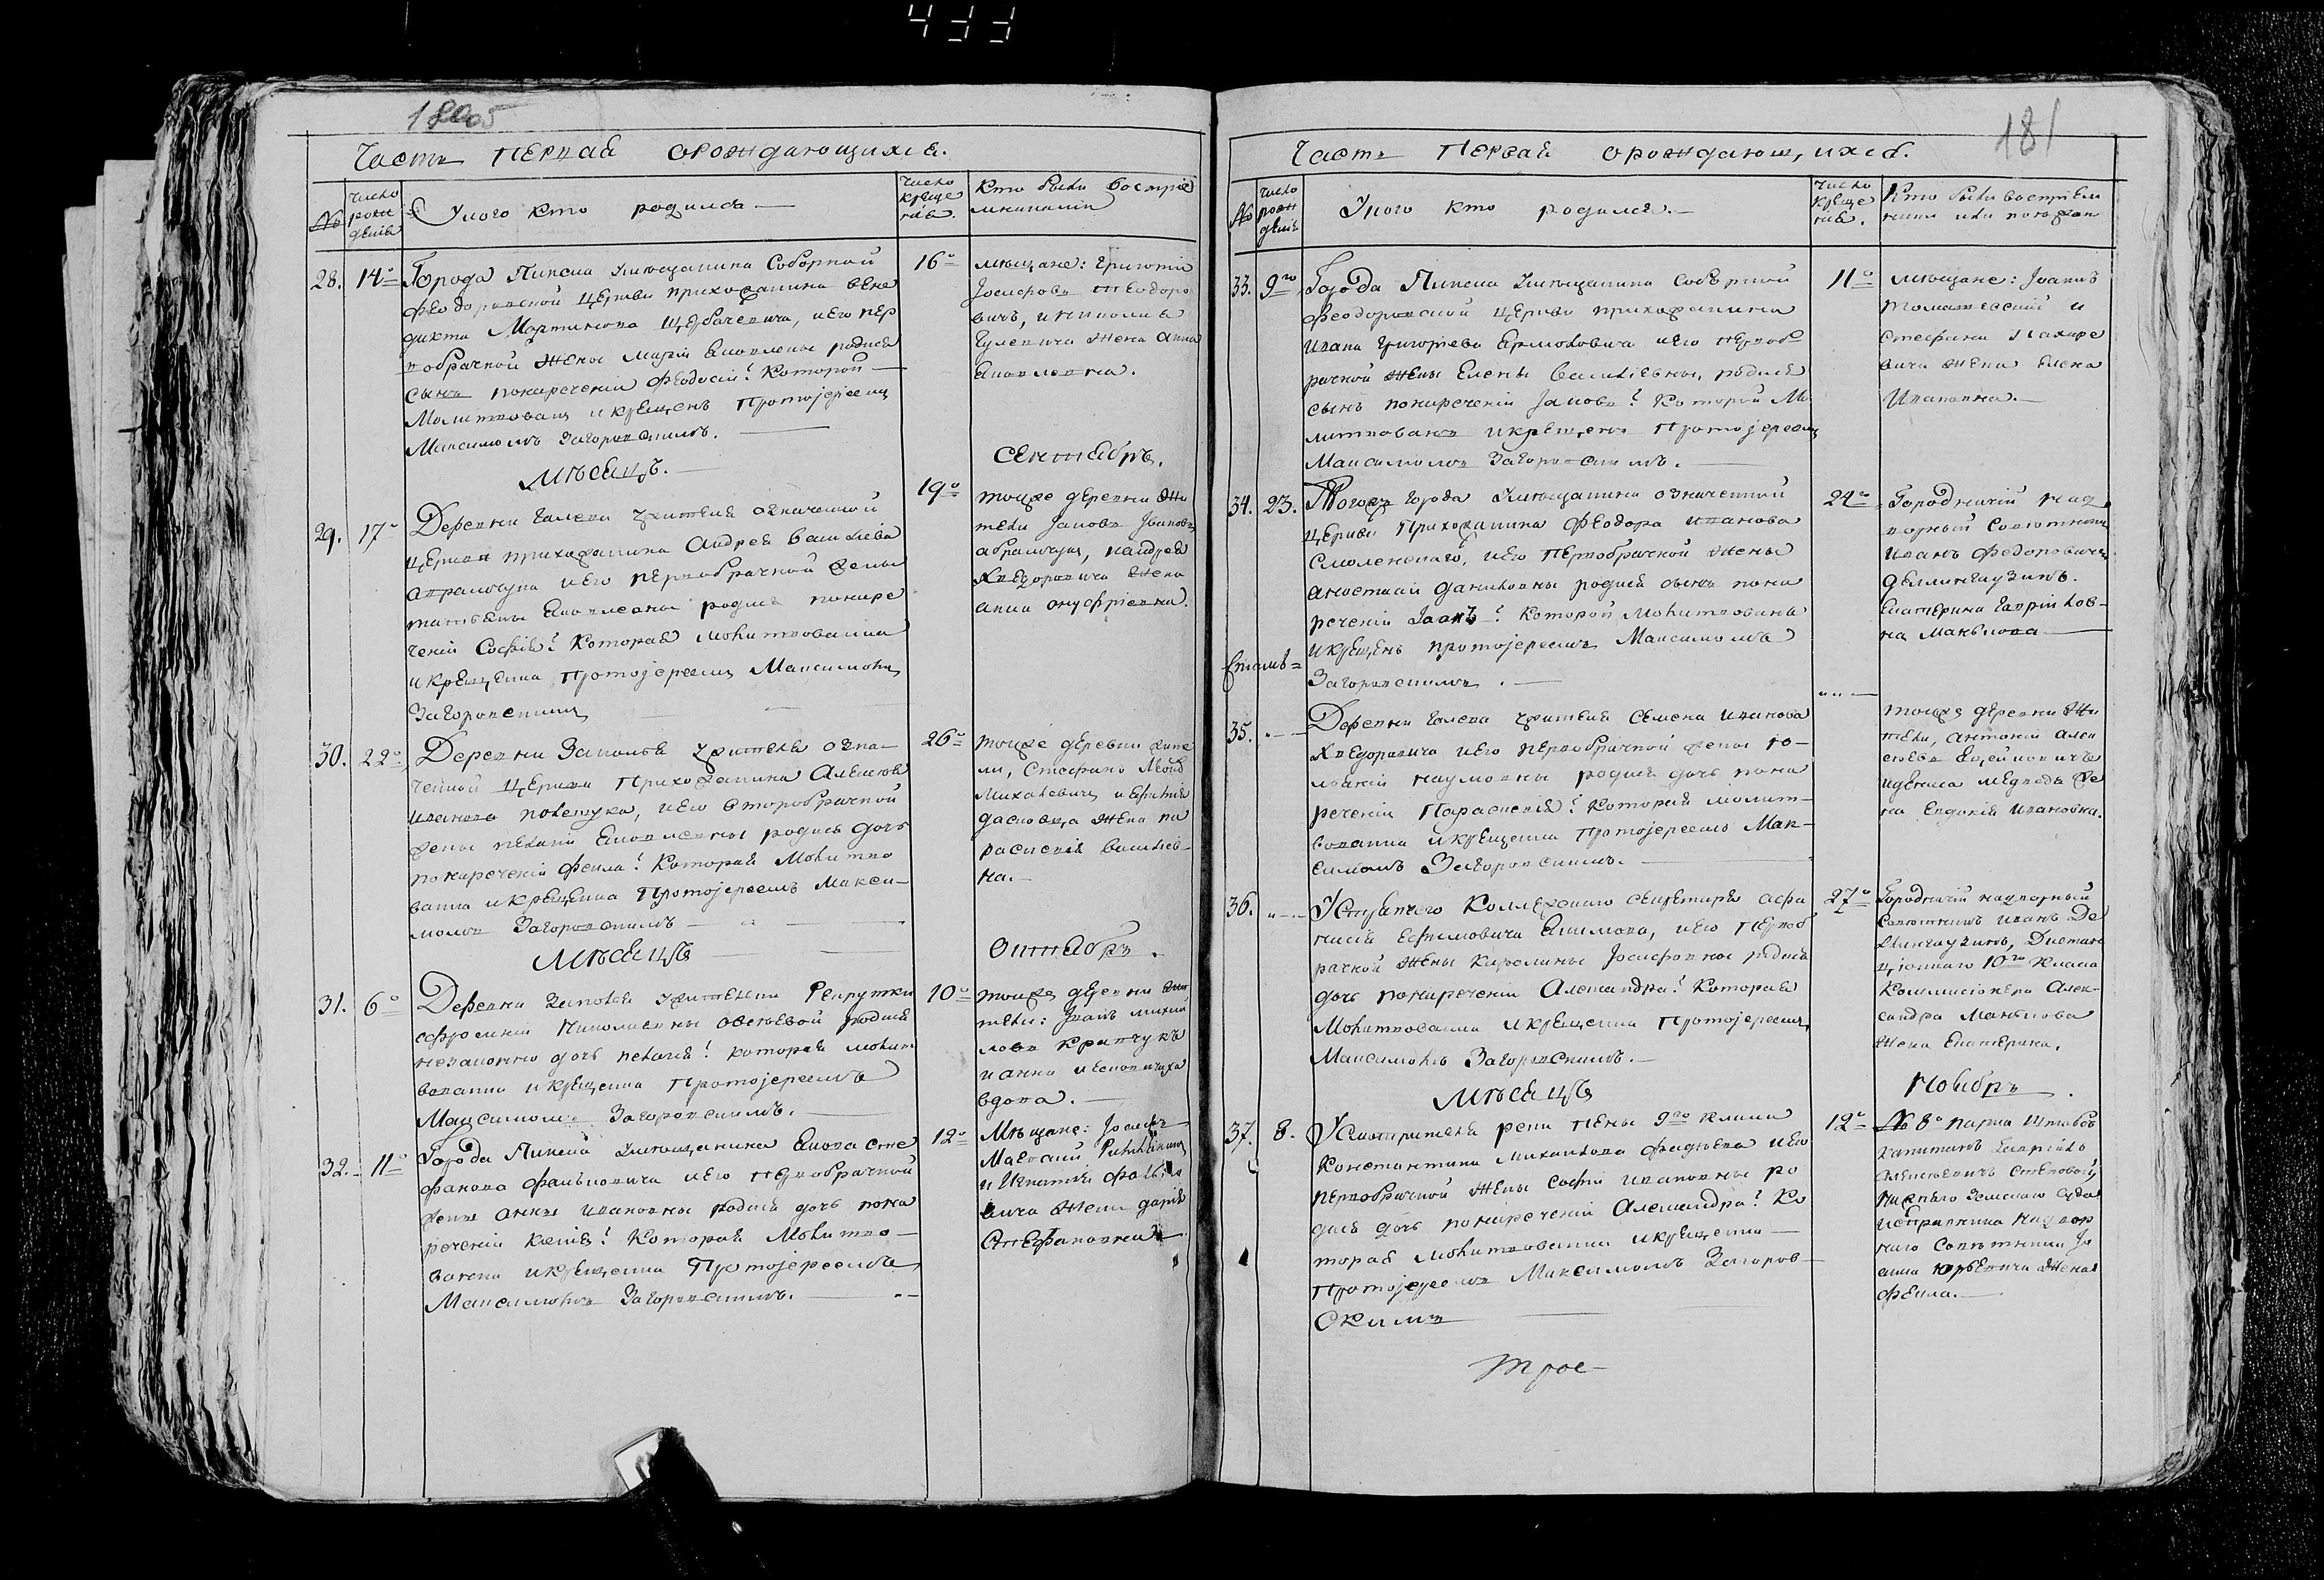 433
1805
Часть первая орождающихся.
№
Число рождения
Укого кто родился
Число крещения.
Кто были восприемниками
28.
14о
Города Пинска мещанина Соборной
Феодоровской церкви прихожанина Вене
дикта Мартинова Щербачевича, иего пер
вобрачной жены Марiи Яковлевы родися
сынъ понареченiи Феодосiй! Которой
Молитвованъ икрещенъ Протоjереемъ
Максимомъ Загоровскимъ.
16о
мещане: Григорiй
Jосифовъ Теодоро
вичъ, и Николая
Гулевича жена Анна
Яковлевна.
Месяцъ.
Сентябрь.
29.
17о
Деревни Галева жителя означенной
церкви прихожанина Андрея Василiева
Абрамчука иего первобрачной жены
Татiяны Яковлевны родися понаре
ченiи Софiя! Которая молитвованна
икрещенна Протоjереемъ Максимомъ
Загоровскимъ
19о
тоиже деревни жи
тели Jаковъ Jвановъ
Абрамчукъ, иандрея
Хведоровича жена
анна онуфрiевна.
30.
22о
Деревни Заполья жителя озна-
ченной церкви Прихожанина Алексея
Иванова Полещука, иего второбрачной
жены Яковлевны родися дочь
понареченiи Фекла! Которая Молитво
ванна икрещенна Протоjереемъ Макси-
момъ Загоровскимъ
26о
тоиже деревни жите
ли, Стефанъ
Михалевичъ
жена па
раскевiя Василiев-
на.
Месяцъ
Октябрь.
31.
6о
Деревни Заполья жительки Рекрутки
Николаевны родися
незаконно дочь Пелагiя! которая молит
вованна икрещенна Протоjереемъ
Максимомъ Загоровскимъ.
10о
тоиже деревни жи
тели: Jванъ Михай
ловъ Крапчукъ
и анна
вдова.
32.
11о
Города Пинска мещанина Якова Сте
фанова Фальковича иего первобрачной
жены Анны Ивановны родися дочь пона
реченiи Ксенiя! Которая Молитво-
ванна икрещенна Протоjереемъ
Максимомъ Загоровскимъ.
12о
Мещане: Jосифъ
и Игнатiя Фалько
вича жена дарiя
Стефановна
181
Часть Первая орождающихся.
№
Число рожденiя
Укого кто родился.
Число крещения.
Кто были восприем
33.
9го
Города Пинска мещанина Соборной
Феодоровской церкви прихожанина
Ивана Григорiева Ермоловича иего первоб
рачной жены Елены Василiевны, родися
сынъ понареченiи Jаковъ! Которой Мо
литвованъ икрещенъ Протоjереемъ
Максимомъ Загоровскимъ.
11о
мещане: Jоаннъ
Томашевскiй и
Стефана Макаре
вича жена Елена
Ивановна.
34.
23.
Тогожъ города мещанина означенной
церкви Прихожанина Феодора Иванова
Смоленскаго, иего Первобрачной жены
Анастасiи Даниловны родися сынъ пона
реченiи Jоаннъ! Которой Молитвованъ
икрещенъ протоjереемъ Максимомъ
Загоровскимъ.
24го
Городничiй над
ворный Советникъ
Иванъ Федоровичъ
Деллингаузинъ.
Екатерина Гаврилов-
на Манькова
35.
Деревни Галева жителя Семена Иванова
Хведоровича иего первобрачной жены ю-
лiанiи Наумовны родися дочь пона
реченiи Параскевiя! Которая молит-
вованна икрещенна Протоjереемъ Мак-
симомъ Загоровскимъ.
тоиже деревни жи
тели, Антонiй Алек
сеевъ
идениса Медведя же
на Евдокiя Ивановна.
36.
Коллежскаго Секретаря Афа
насiя Ефимовича Якимова, иего Первоб
рачной жены Каролины Jосифовны родися
дочь понареченiи Александра! Которая
Молитвованна икрещенна Протоjереемъ
Максимомъ Загоровскимъ.
27о
Городничiй надворный
Советникъ Иванъ Де
ллингаузинъ,
10го Класса
Коммисiонера Алек-
сандра Манькова
жена Екатерина.
Месяцъ
Ноябрь.
37.
8.
Усмотрителя реки Пины 9го класса
Константина Михаилова Фадеева иего
первобрачной жены Софiи Ивановны ро
дися дочь понареченiи Александра! Ко
торая молитвованна икрещенна
Протоjереемъ Максимомъ Загоров-
скимъ
12о
Штабсъ
Капитанъ Гаврiилъ
Алексеевичъ
Пинскаго Земскаго суда
исправника надвор
наго Советника Jо
анна Юрьевича жена
Фекла.
трое